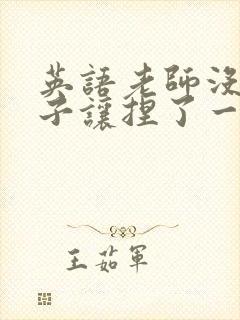 英語老師沒
子讓捏了一
王茹軍